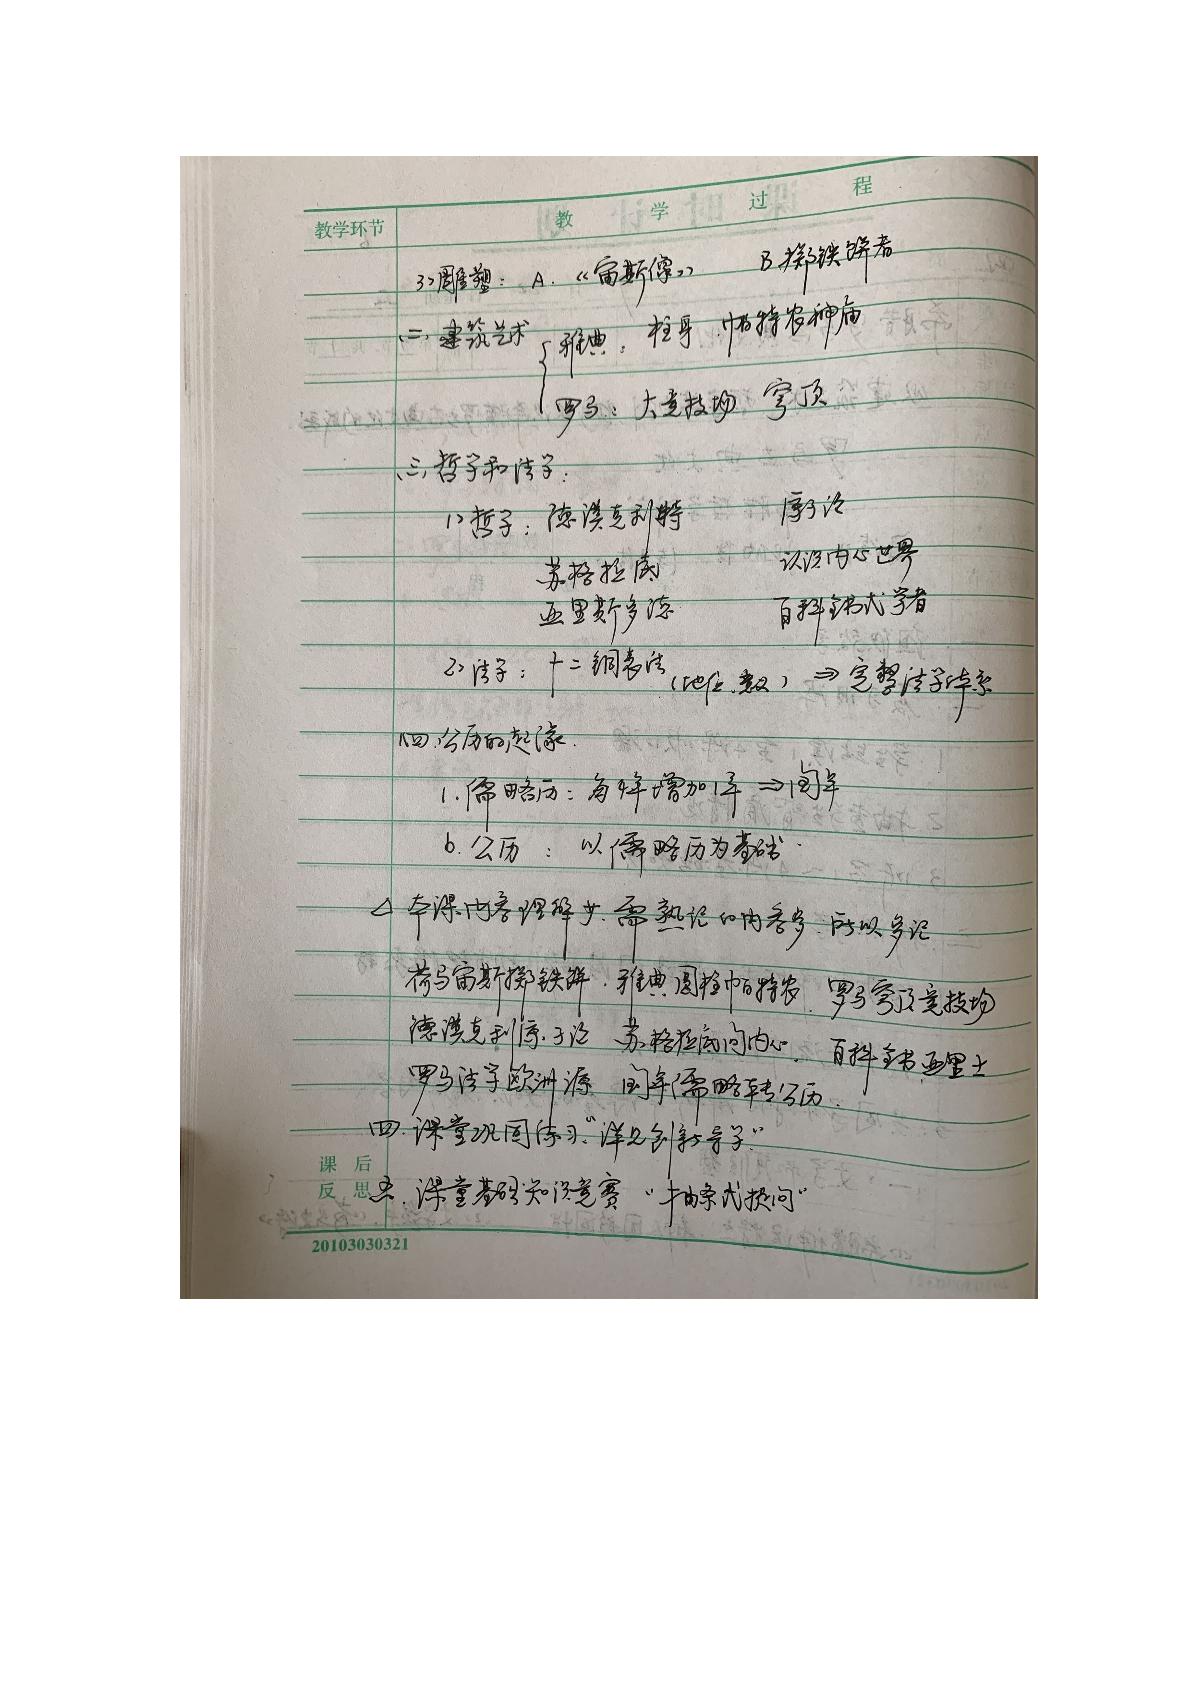 教学环节 教学过程
3>雕塑：A.《宙斯像》 B掷铁饼者
二、建筑艺术 雅典：柱身、帕特农神庙
罗马：大竞技场 穹顶
三、哲学和法学：
1>哲学：德谟克利特 原子论
苏格拉底 认识内心世界
亚里斯多德 百科全书式学者
2>法学：十二铜表法（地位、意义）⇒完整法学体系
四、公历的起源.
1.儒略历：每4年增加1天⇒闰年
b.公历：以儒略历为基础.
△本课内容理解少.需熟记的内容多.所以多记
荷马宙斯掷铁饼.雅典圆柱帕特农.罗马穹顶竞技场
德谟克利原子论 苏格拉底问内心.百科全书亚里士
罗马法学欧洲源 闰年儒略转公历.
四.课堂巩固练习"详见创新导学"
课后
反思 五.课堂基础知识竞赛"抽条式提问"
20103030321